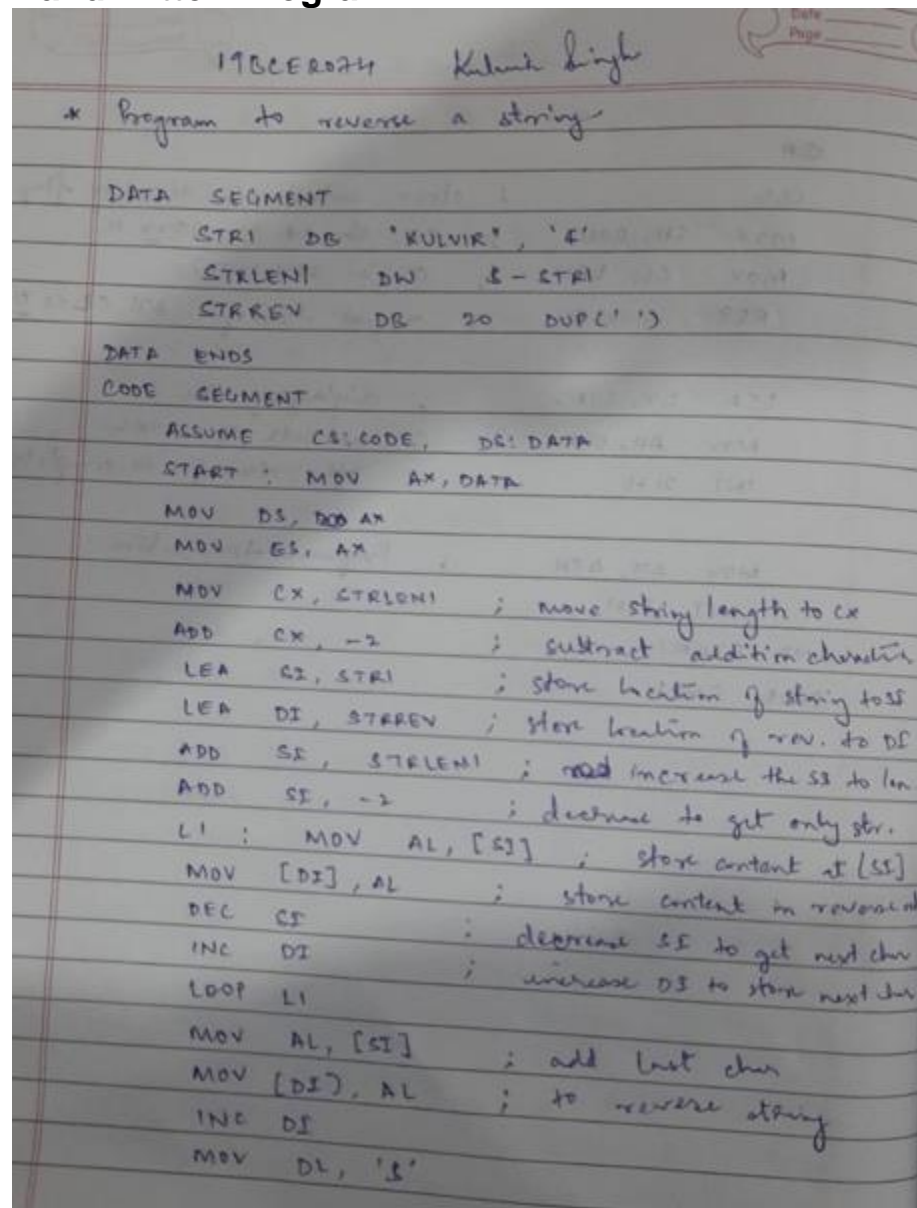 Date
Page
19BCE2074 Singh
* Program to reverse a string
DATA SEGMENT
STR1 DB 'KULVIR', '$'
STRLEN1 DW $-STR1
STRREV DB 20 DUP(' ')
DATA ENDS
CODE SEGMENT
ASSUME CS:CODE, DS:DATA
START: MOV AX, DATA
MOV DS, AX
MOV ES, AX
MOV CX, STRLEN1 ; move string length to cx
ADD CX, -2 ; substract addition
LEA SI, STR1 ; store location of string to SI
LEA DI, STRREV ; store location of rev. to DI
ADD SI, STRLEN1 ; increase the SI to len
ADD SI, -2 ; decrease to get only str.
L1 : MOV AL, [SI] ; store content at [SI]
MOV [DI], AL ; store content in
DEC SI ; decrease SI to get next char
INC DI ; increase DI to store next char
LOOP L1
MOV AL, [SI] ; add last char
MOV [DI], AL ; to reverse string
INC DI
MOV DL, '$'